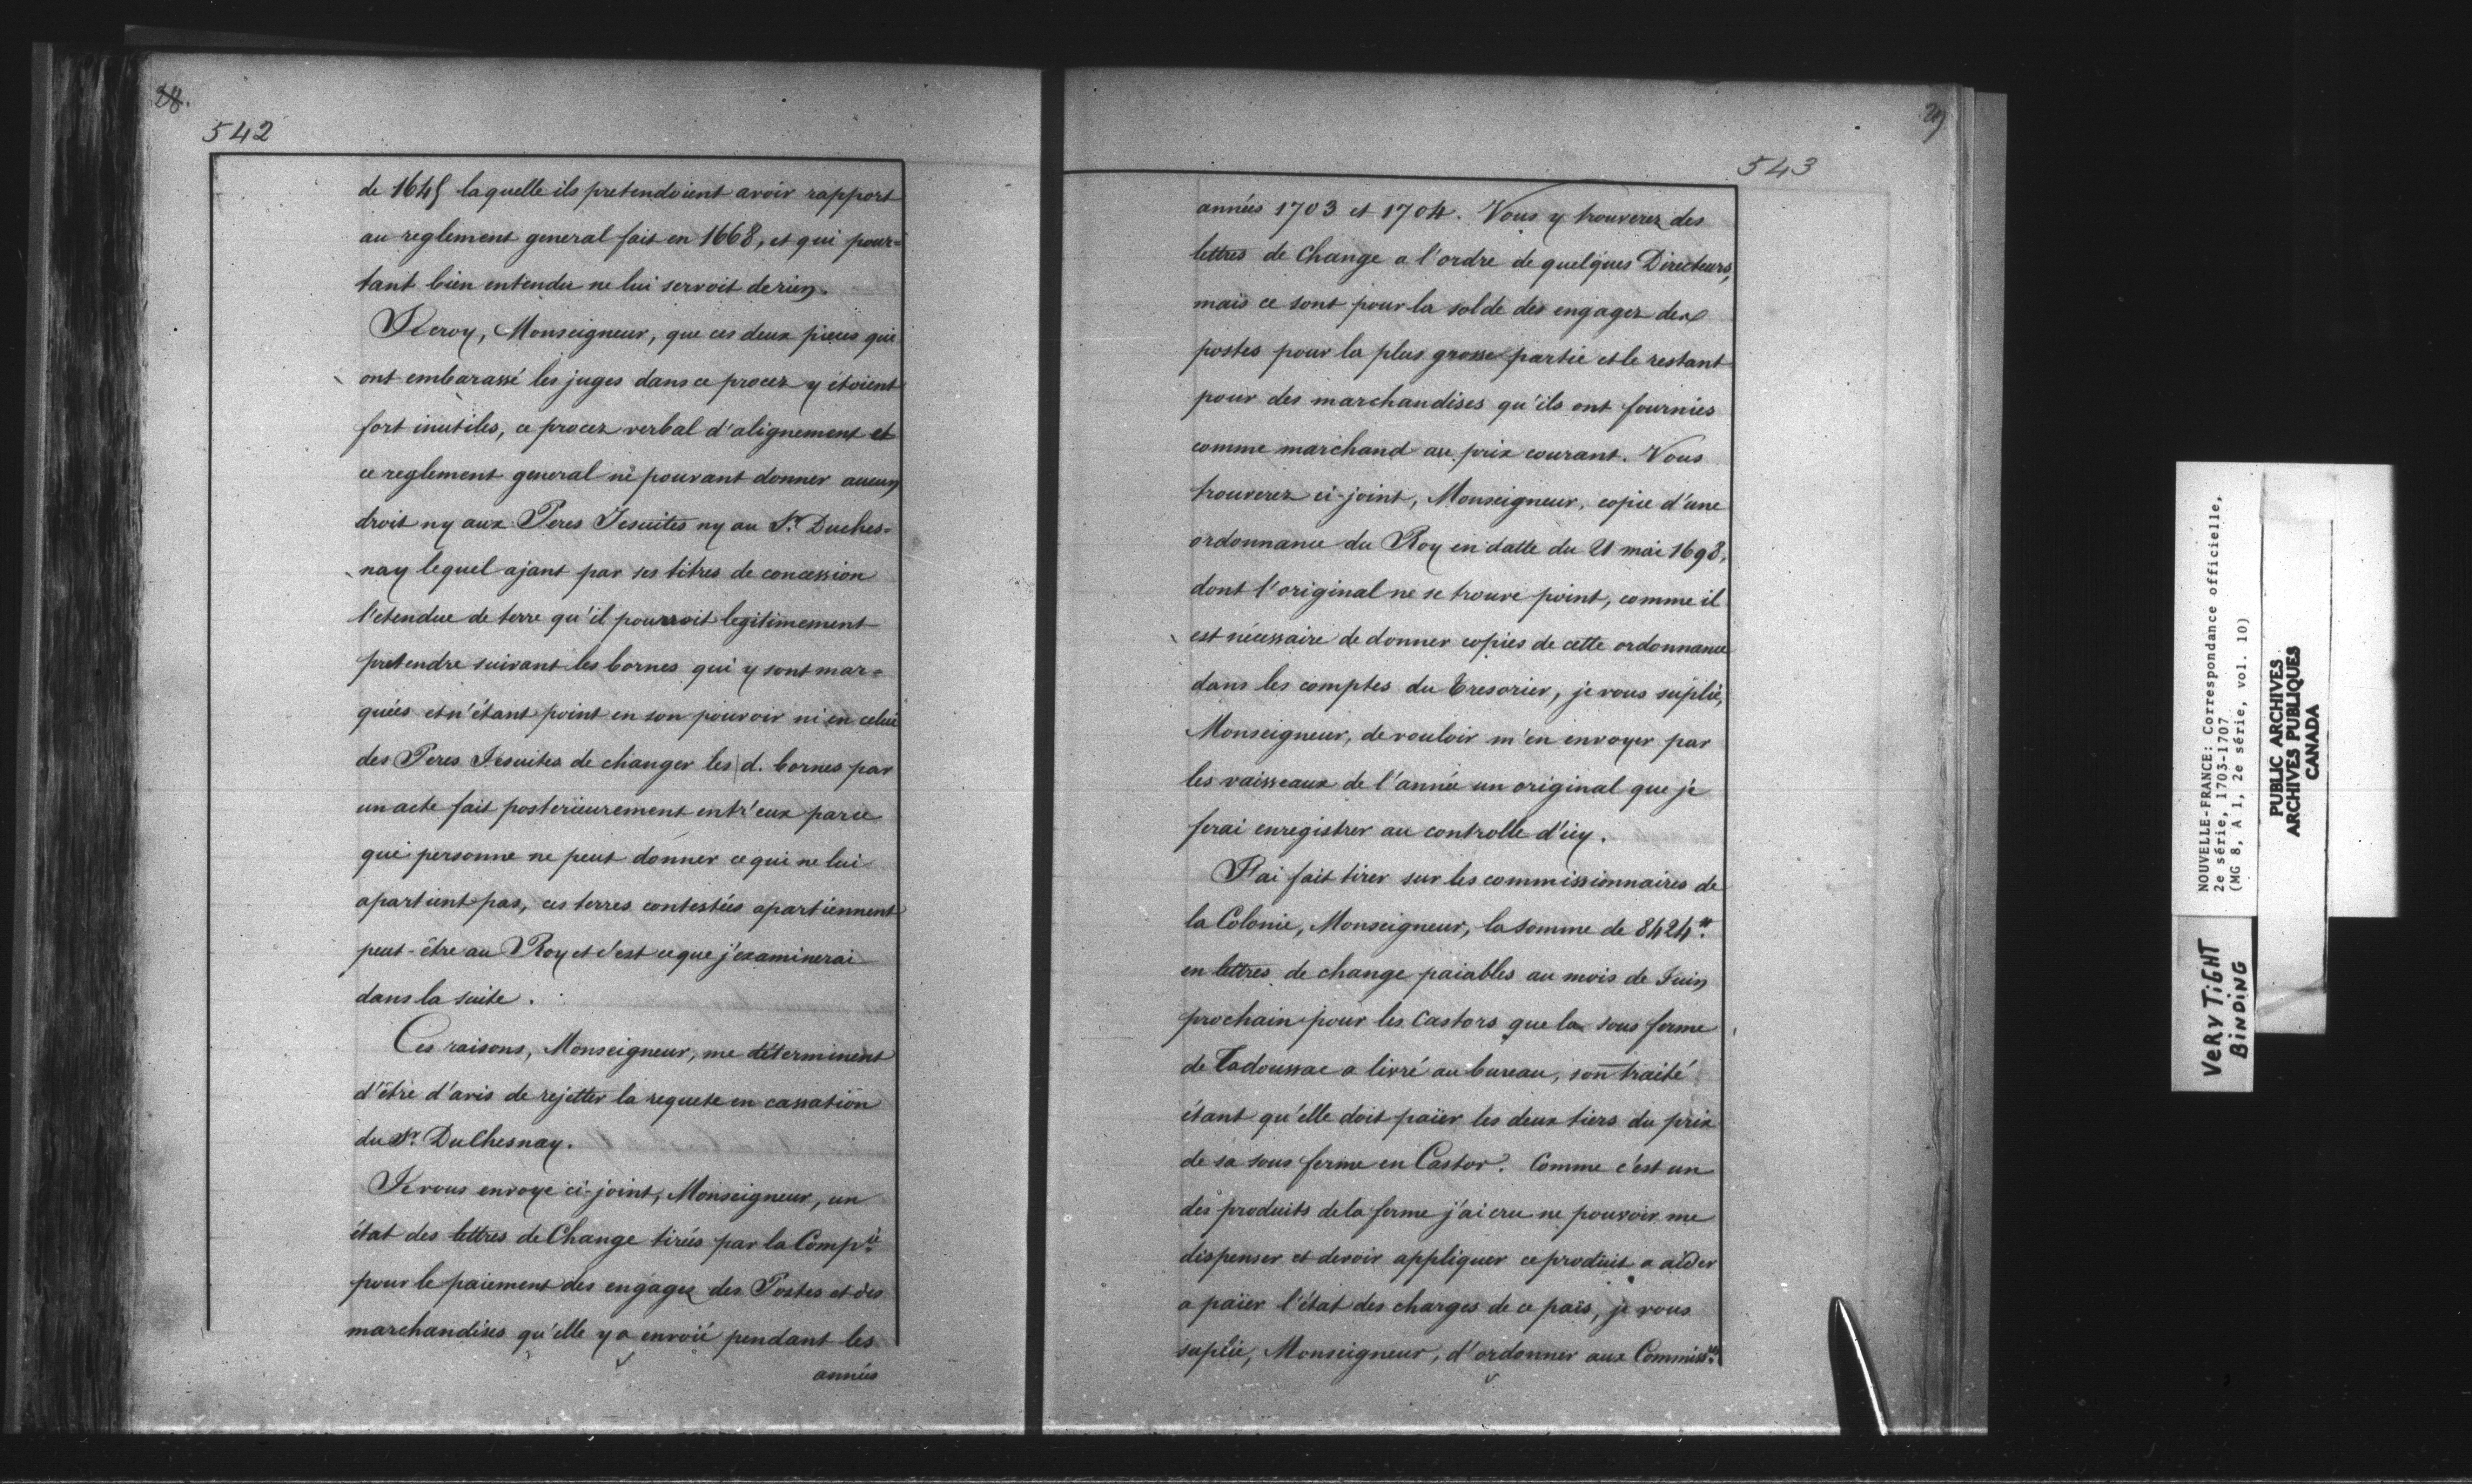 28.
542
de 1645 laquelle ils pretendoient avoir rapport
au reglement general fait en 1668, et qui pour=
tant bien entendu ne lui servoit de rien.
Je croy, Monseigneur, que ces deux pieces qui
ont embarassé les juges dans ce procez y étoient
fort inutiles, ce procez verbal d'alignement et
ce reglement general ne pouvant donner aucun
droit ny aux Peres Jesuites ny au Sr. Duches=
nay lequel ajant par ses titres de concession
l'etendue de terre qu'il pourroit legitimement
pretendre suivant les bornes qui y sont mar=
quées et n'étant point en son pouvoir ni en celui
des Peres Jesuites de changer les d. bornes par
un acte fait posterieurement entr'eux parce
que personne ne peut donner ce qui ne lui
apartient pas, ces terres contestées apartiennent
peut-être au Roy et c'est ce que j'examinerai
dans la suite.
Ces raisons, Monseigneur, me déterminent
d'être d'avis de rejetter la requete en cassation
du Sr. DuChesnay.
Je vous envoye ci-joint, Monseigneur, un
état des lettres de Change tirées par la Compie.
pour le paiement des engagez des Postes et des
marchandises qu'elle y a envoié pendant les
années
29
543
années 1703 et 1704. Vous y trouverez des
lettres de Change a l'ordre de quelques Directeurs,
mais ce sont pour la solde des engagez des
postes pour la plus grosse partie et le restant
pour des marchandises qu'ils ont fournies
comme marchand au prix courant. Vous
trouverez ci-joint, Monseigneur, copie d'une
ordonnance du Roy en datte du 21 mai 1698,
dont l'original ne se trouve point, comme il
est nécessaire de donner copies de cette ordonnance
dans les comptes du Tresorier, je vous suplie,
Monseigneur, de vouloir m'en envoyer par
les vaisseaux de l'année un original que je
ferai enregistrer au controlle d'icy.
J'ai fait tirer sur les commissionnaires de
la Colonie, Monseigneur, la somme de 8424#.
en lettres de change paiables au mois de Juin
prochain pour les Castors que la sous ferme
de Tadoussac a livré au bureau, son traité
étant qu'elle doit païer les deux tiers du prix
de sa sous ferme en Castor. Comme c'est un
des produits de la ferme j'ai cru ne pouvoir me
dispenser et devoir appliquer ce produit a aider
a païer l'état des charges de ce païs, je vous
suplie, Monseigneur, d'ordonner aux Commissres.
NOUVELLE-FRANCE: Correspondance officielle,
2e série, 1703-1707
(MG 8, A 1, 2e série, vol. 10)
PUBLIC ARCHIVES
ARCHIVES PUBLIQUES
CANADA
VERY TIGHT
BINDING